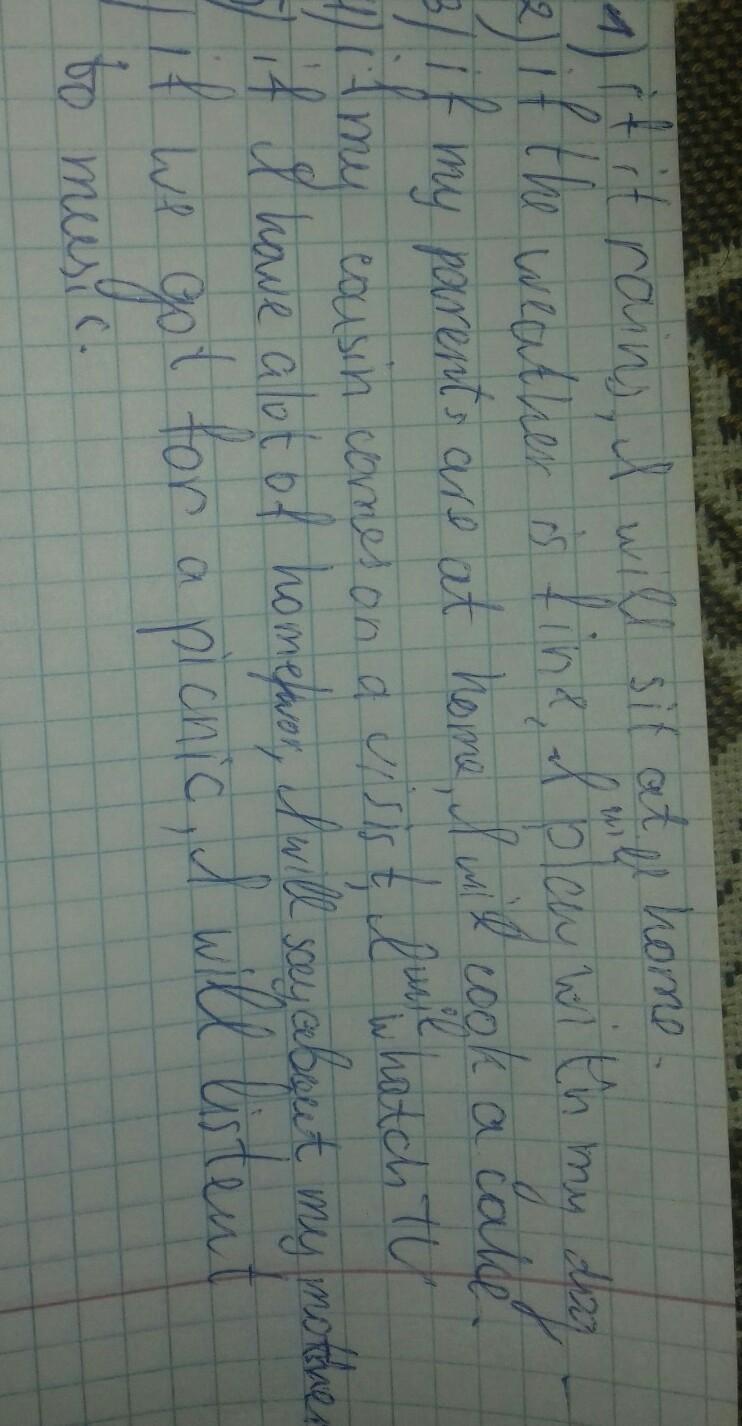 1) if it rains, I will sit at home.
2) if the weather is fine, I will play with my dog
3) if my parents are at home, I will cook a cake.
4) if my cousin comes on a visist, I will whatch TV
5) if I have alot of I will say about my mother
) if we got for a picnic, I will listent
to music.